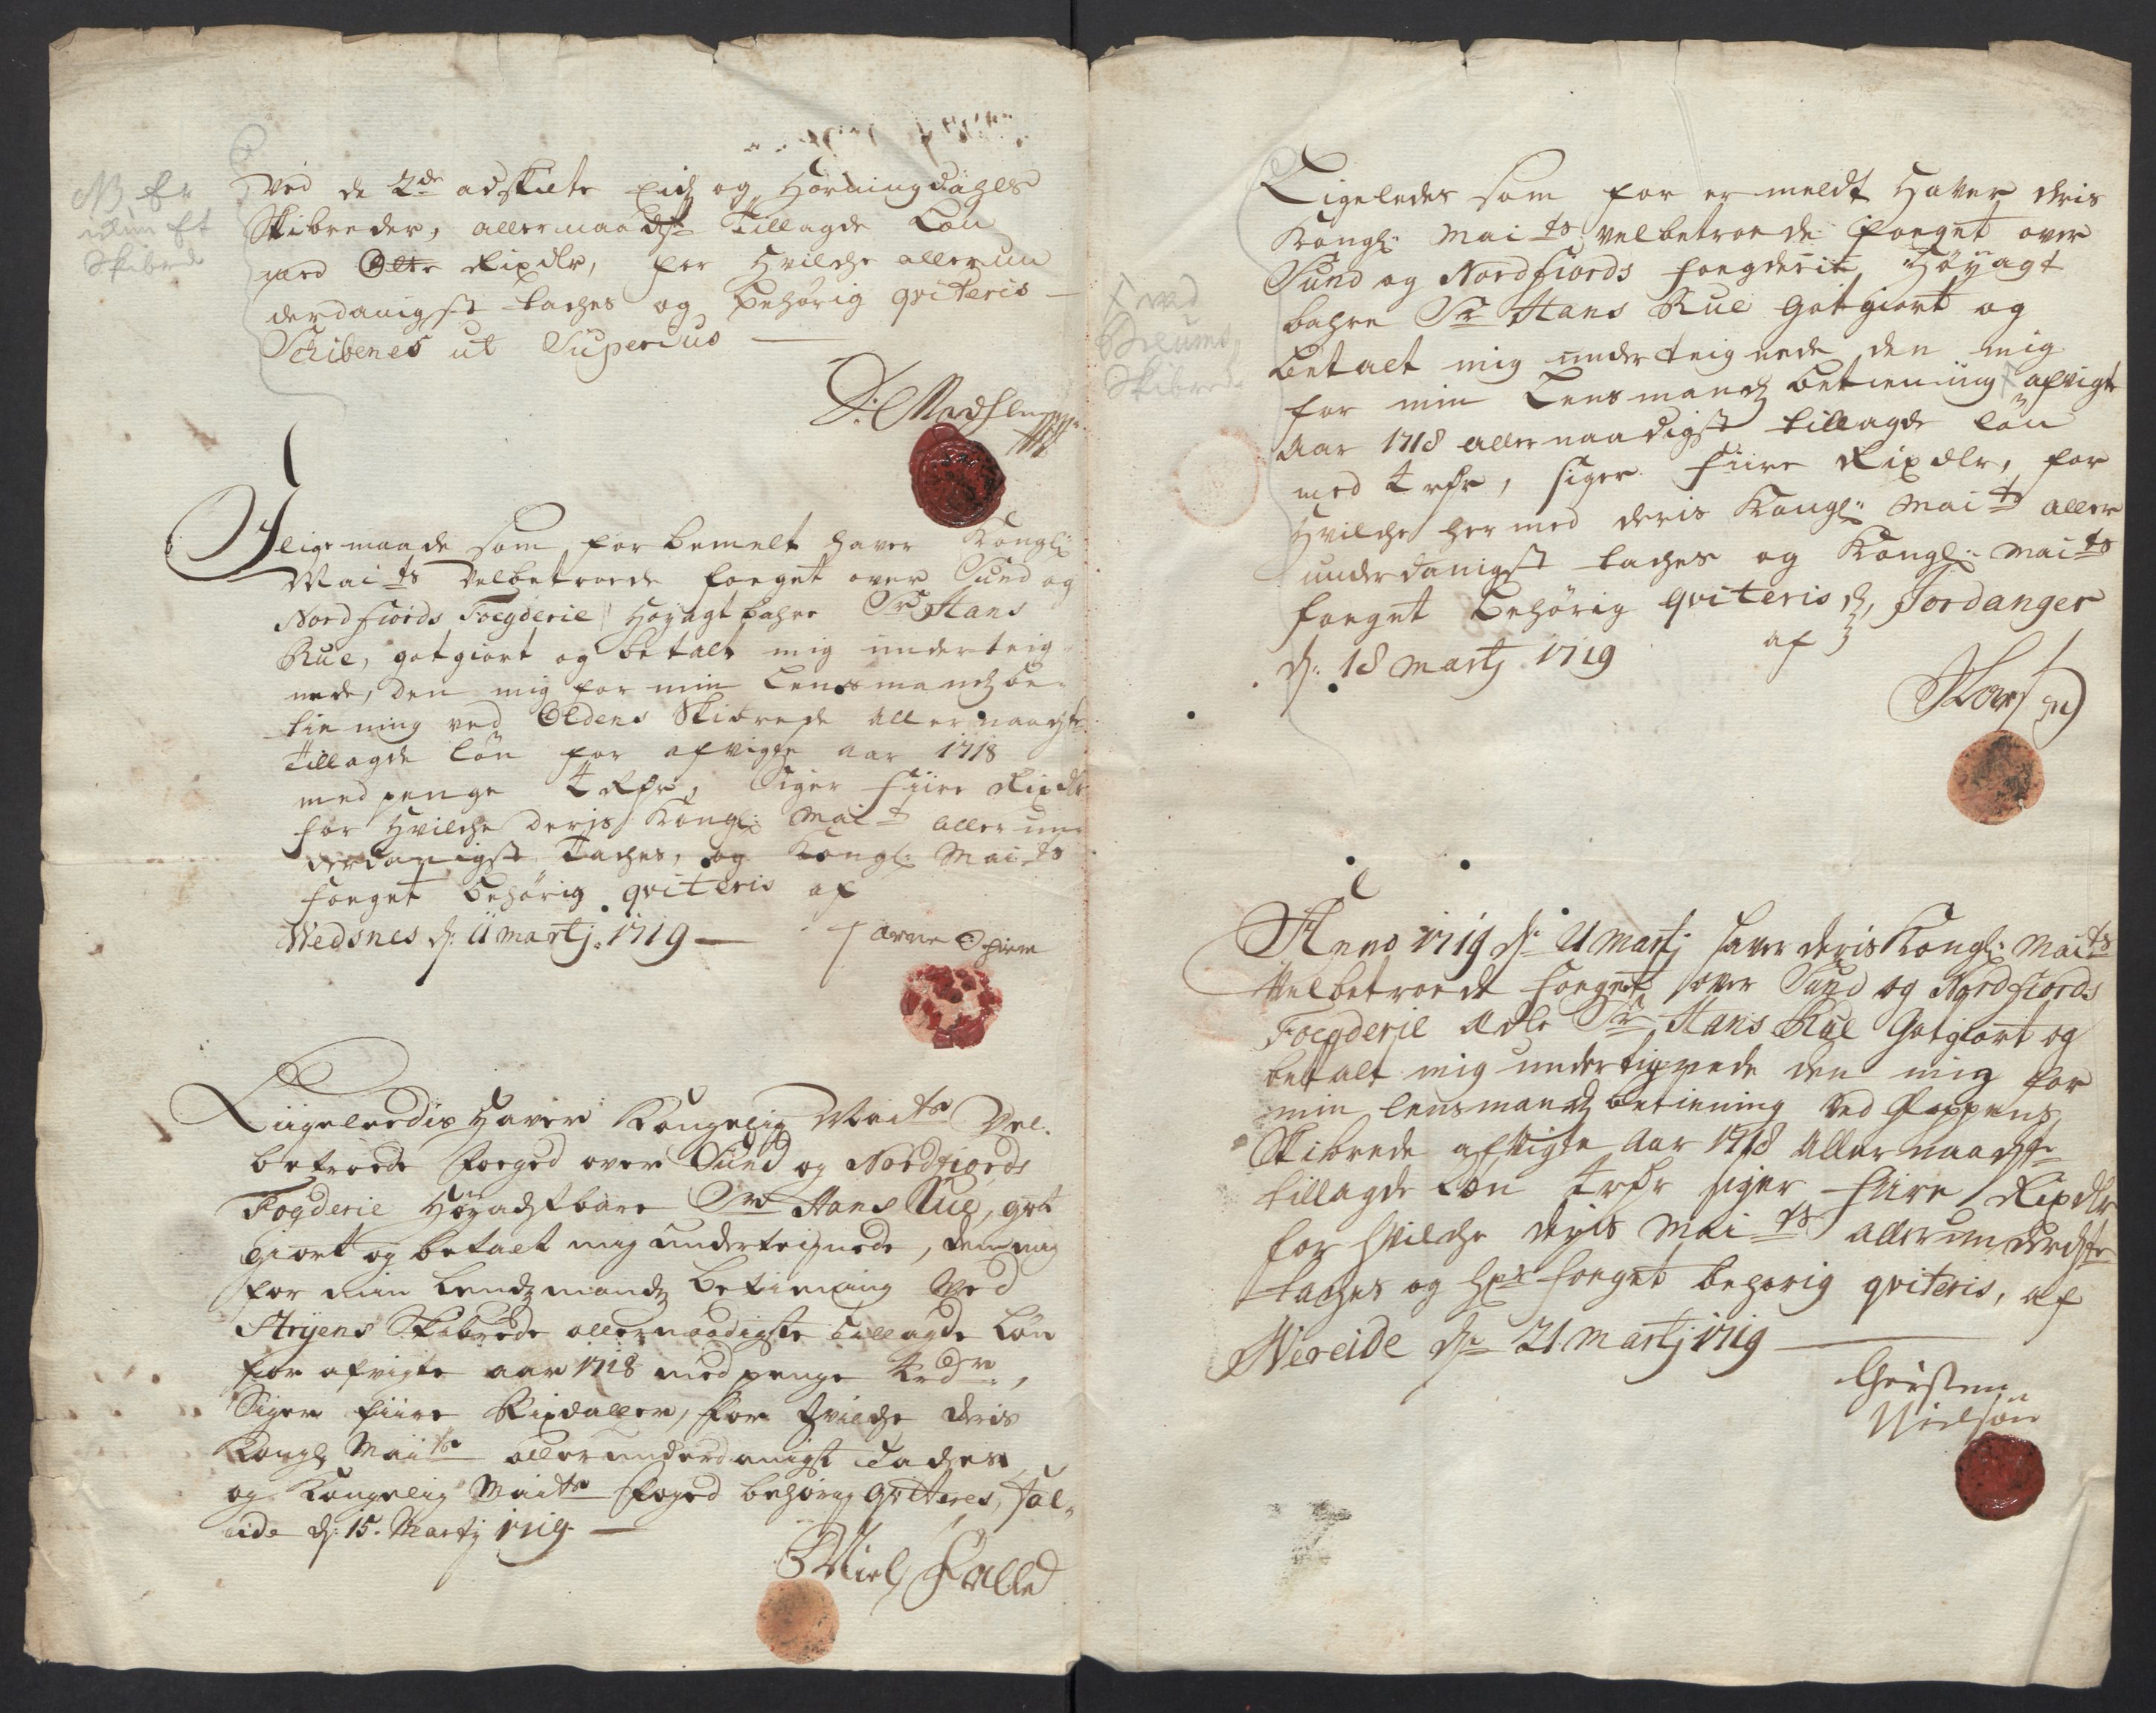 NB er
ikun et
Skibrede
Ved de 2de adskilte Eids og Horningdahls
Skibreder, allernaadst Tillagde Løn
med Otte Rixdlr, for hvilche allerun
derdanigst tackes og behørig qviteris
Schibenes ut Superius
D: Madsen
I lige maade som for bemelt haver Kongl:
Maits Velbetroede foeget over Sund og
Nordfiords Foegderie Høyagtbahre Sr Hans
Rue, gotgiort og betalt mig underteig
nede, den mig for min Lensmands be-
tiening ved Oldens Skibrede allernaadste
Tillagde løn for afvigte aar 1718
med penge 4 Rdr, Siger fiire Rixdlr
for hvilche deris Kongl: Mait allerun
derdanigst tackes, og Kongl: Maits
foeget behørig qviteris af
Wedsnes d: 11 martj: 1719
arne
Liigeleedis haver Kongelig Maits Vel-
betroede foeged over Sund og Nordfiords
Fogderie Høyachtbare Sr Hans Rue, got
giort og betalt mig underteignede, den mig
for min Lendzmandz betiening Ved
Stryens Skibrede allernaadigste tillagde Løn
for afvigte aar 1718 med penge 4 rdr,
Siger fiire Rixdaller, for hvilche deris
Kongl Maits allerunderdanigst tackes,
og Kongelig Maits foged behørig qvitteres, Fal-
eide d: 15. Martj 1719.
Niels Falled
Ligeledes som for er meldt haver deris
Kongl: Maits velbetroede foeget over
Sund og Nordfiords foegderie Høyagt
bahre Sr Hans Rue gotgiort og
betalt mig underteignede den mig
for min Lensmands betiening afvigte
ved
Breums
Skibrede
aar 1718 allernaadigst tillagde løn
med 4 rdr, siger fiire Rixdlr, for
hvilche hermed deris Kongl: Maits aller
underdanigst tackes og Kongl: Maits
foeget behørig qviteris, Jordanger
d: 18 martj 1719
af
Anno 1719 d: 21 Martj haver deris Kongl: Maits
Velbetroede foeget over Sund og Nordfiords
Foegderie Adle Sr Hans Rue Gotgiort og
betalt mig undertegnede den mig for
min lensmands betiening ved Goppens
Skibrede afvigte Aar 1718 Allernaadste
tillagde Løn 4 rdr siger fiire Rixdlr
for hvilche deris Maits allerunderdste
tackes og foeget behørig qviteris, af
Wereide d: 21 Martj 1719
Christen
Nielsøn